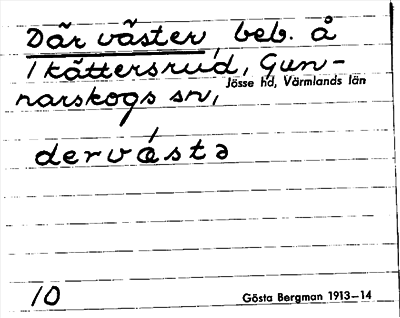 Där väster, beb. å
Tkättersrud, Gun-
narskogs sn,
Jösse hd, Värmlands län
dervástə
10
Gösta Bergman 1913–14